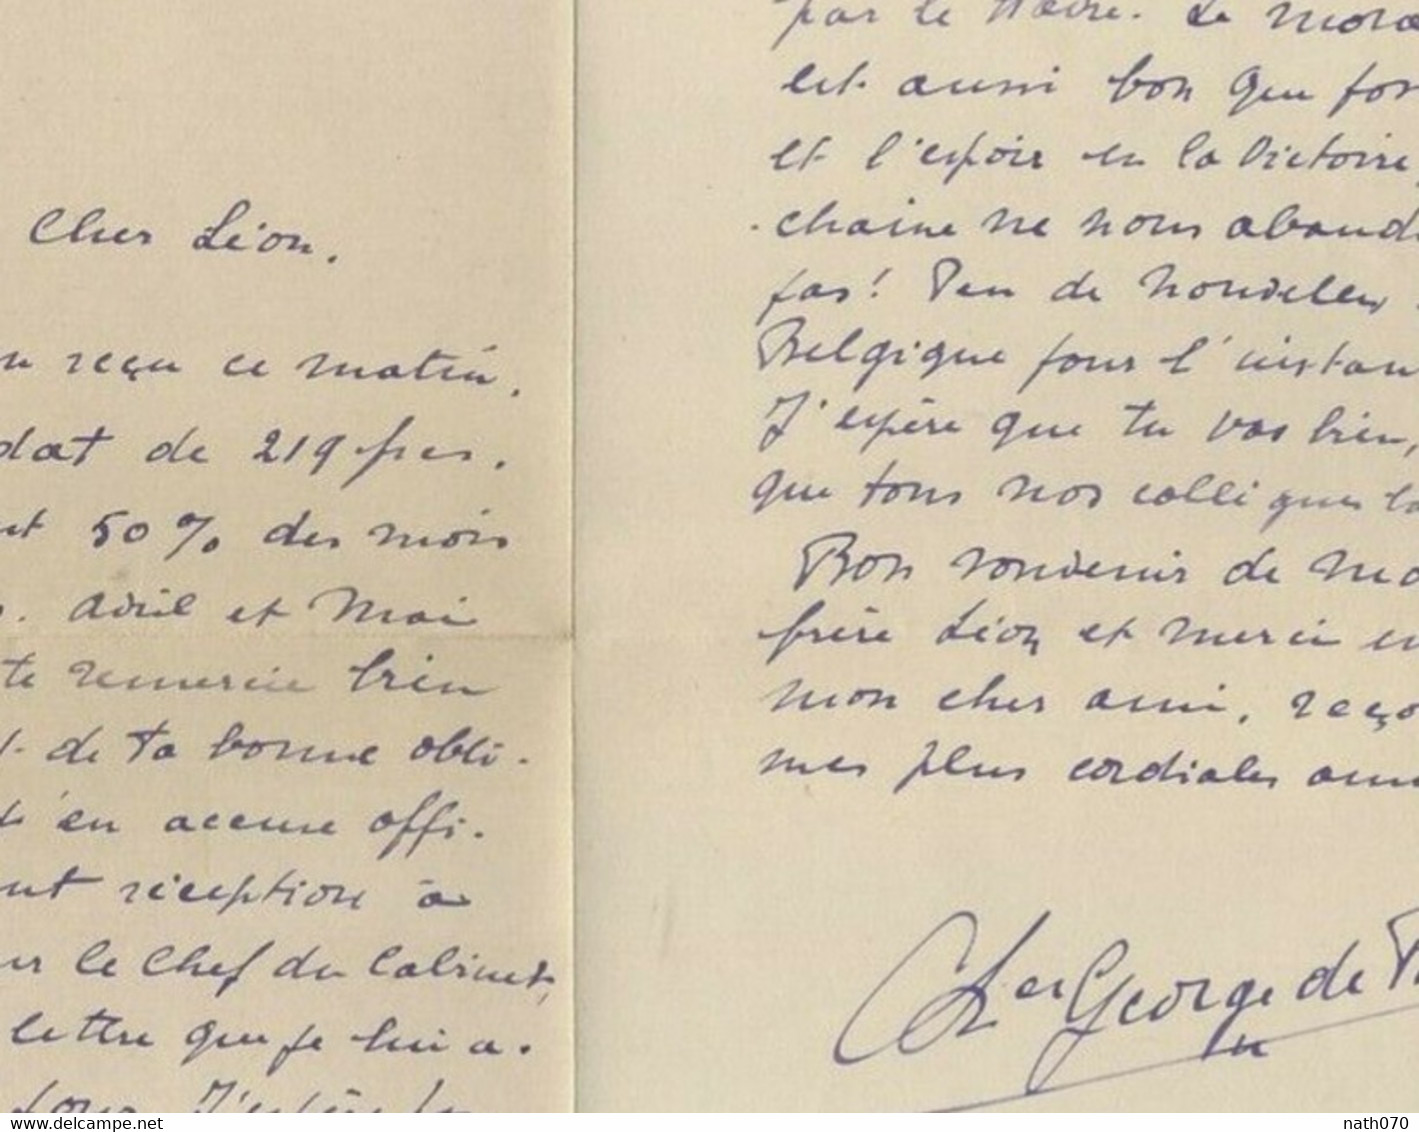 Cher Léon.
reçu ce matin,
dat de 219 frcs.
50% des mois
Avril et Mai
te remercie bien
de ta bonne obli-
j'en accuse offi-
réception à
le Chef du Cabinet,
lettre que je lui a-
J'espère
par le Havre. Le mora
est aussi bon que
et l'espoir en la Victoire
chaine ne nous aband
pas! Peu de nouvelles
Belgique pour l'instan
J'espère que tu vas bien,
que tous nos collègues
Bon souvenir de mo
frère Léon et merci
mon cher ami, reço
mes plus cordiales ami
Cher George de
delcampe.net
nath070